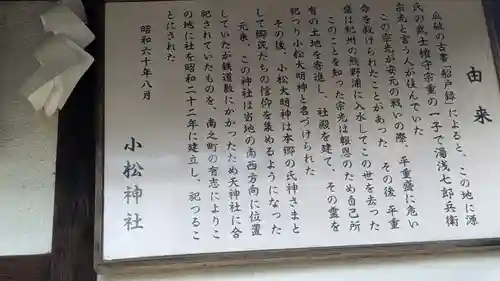 由来
瓜破の古書「船戸録」によると、この地に源
氏の武士植守宗重の一子で湯浅七郎兵衛
宗光と言う人が住んでいた
この宗光が安元の戦いの際、平重盛に危い
命を救けられたことがあった その後 平重
盛は紀州の熊野浦に入水してこの世を去った
このことを知った宗光は報恩のため自己所
有の土地を寄進し、社殿を建て、その霊を
祀つり小松大明神と名づけられた
その後、小松大明神は本郷の氏神さまと
して郷民たちの信仰を集めるようになった
元来、この神社は当地の南西方向に位置
していたが鉄道敷にかかったため天神社に合
祀されていたものを、南之町の有志によりこ
の地に社を昭和二十二年に建立し、祀つるこ
とにされた
昭和六十年八月
小松神社